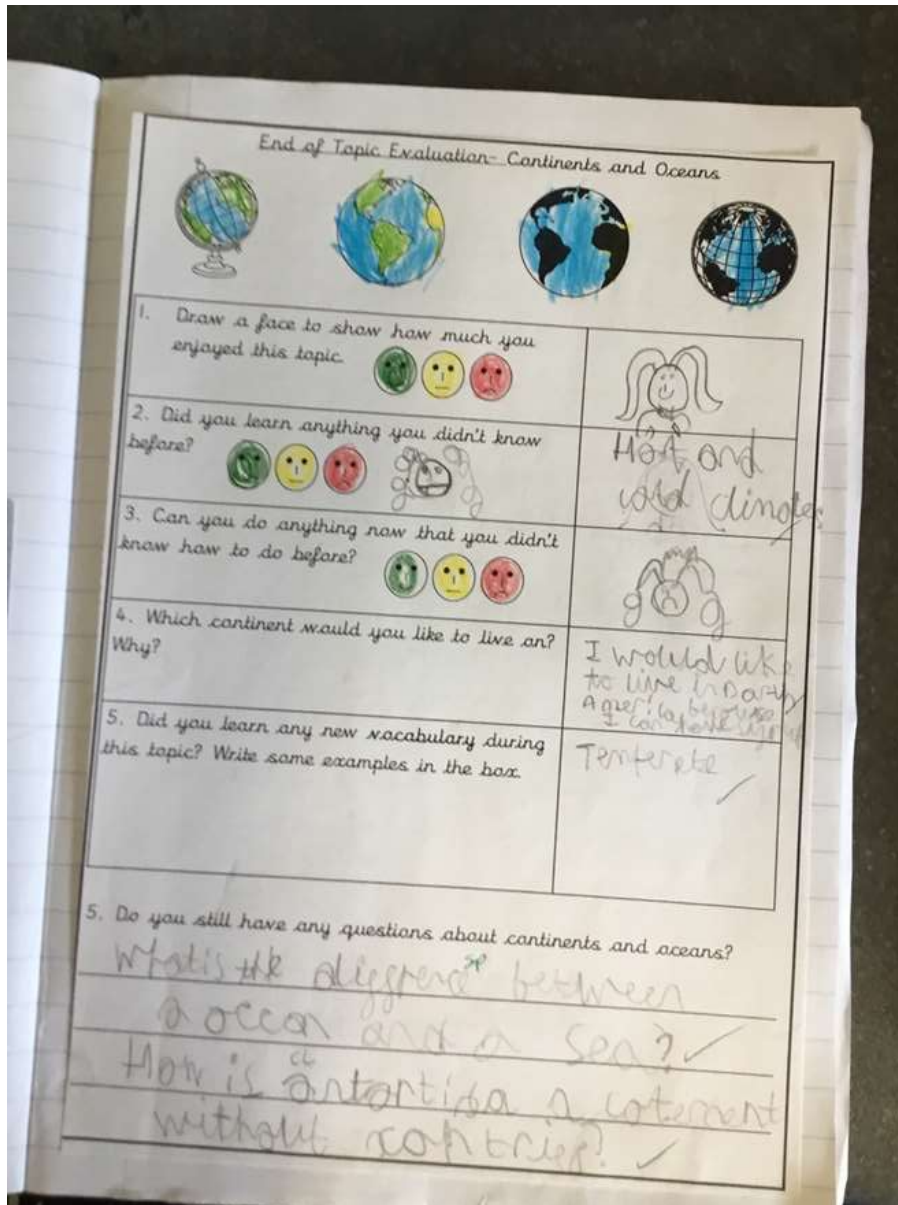 End of Topic Evaluation- Continents and Oceans
1. Draw a face to show how much you
enjoyed this topic.
2. Did you learn anything you didn't know
before?
Hot and
cold climates
3. Can you do anything now that you didn't
know how to do before?
4. Which continent would you like to live on?
Why?
I would like
to live in
America because
I can
5. Did you learn any new vocabulary during
this topic? Write some examples in the box.
Temperate
5. Do you still have any questions about continents and oceans?
What is the between
a ocean and a sea?
How is a
without